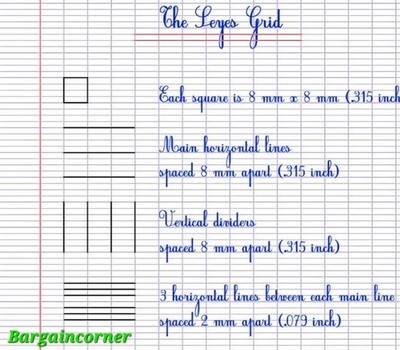 The Seyes Grid
Each square is 8 mm x 8 mm (.315 inch
Main horizontal lines
spaced 8 mm apart (.315 inch)
Vertical dividers
spaced 8 mm apart (.315 inch)
3 horizontal lines between each main line
spaced 2 mm apart (.079 inch)
Bargaincorner